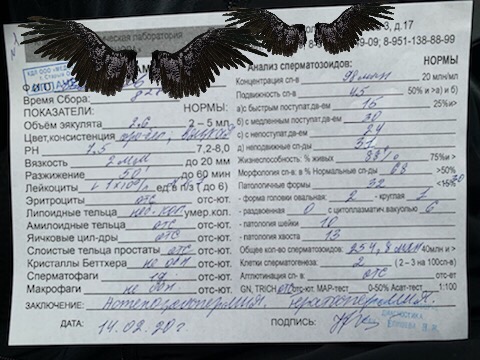 3, д.17
09; 8-951-138-88-99
Анализ сперматозоидов: НОРМЫ
Время Сбора: 8
ПОКАЗАТЕЛИ: НОРМЫ:
Объём эякулята 2.0 2 – 5 мл
Цвет,консистенция
PH 7,5 7,2-8,0
Вязкость 2 мм до 20 мм
Разжижение 50' до 60 мин
Лейкоциты ед.в п/з ( до 6)
Эритроциты отс отс-ют.
Липоидные тельца умер.кол.
Амилоидные тельца отс отс-ют.
Яичковые цил-дры отс отс-ют.
Слоистые тельца простаты отс отс-ют.
Кристаллы Беттхера отс-ют.
Сперматофаги отс-ют.
Макрофаги отс-ют.
Концентрация сп-в 98 млн 20 млн/мл
Подвижность сп-в 45 50% и >а) и б)
а)с быстрым поступат.дв-ем 15 25%и>
б)с медленным поступат.дв-ем 30
с) с непоступат.дв-ем 24
д) неподвижные сп-ды 31
Жизнеспособность: % живых 88% 75%и>
Морфология сп-в: в % Нормальные сп-ды 68 >50%
Патологичные формы 32
- форма головки овальная: - 2 - круглая 1
- раздвоенная 0 с цитоплазматич.вакуолью 6
- патология шейки 10
- патология хвоста 13
Общее кол-во сперматозоидов: 254,8 млн 40млн и >
Клетки сперматогенеза: 2 ( 2 – 3 на 100сп-в)
Агглютинация сп-в: отс отс-ет
GN, TRICH отс отс-ют. МАР-тест 0-50% Асат-тест 1:100
ЗАКЛЮЧЕНИЕ: Астенозооспермия. Тератоспермия.
ДАТА: 14.02.20г. ПОДПИСЬ: